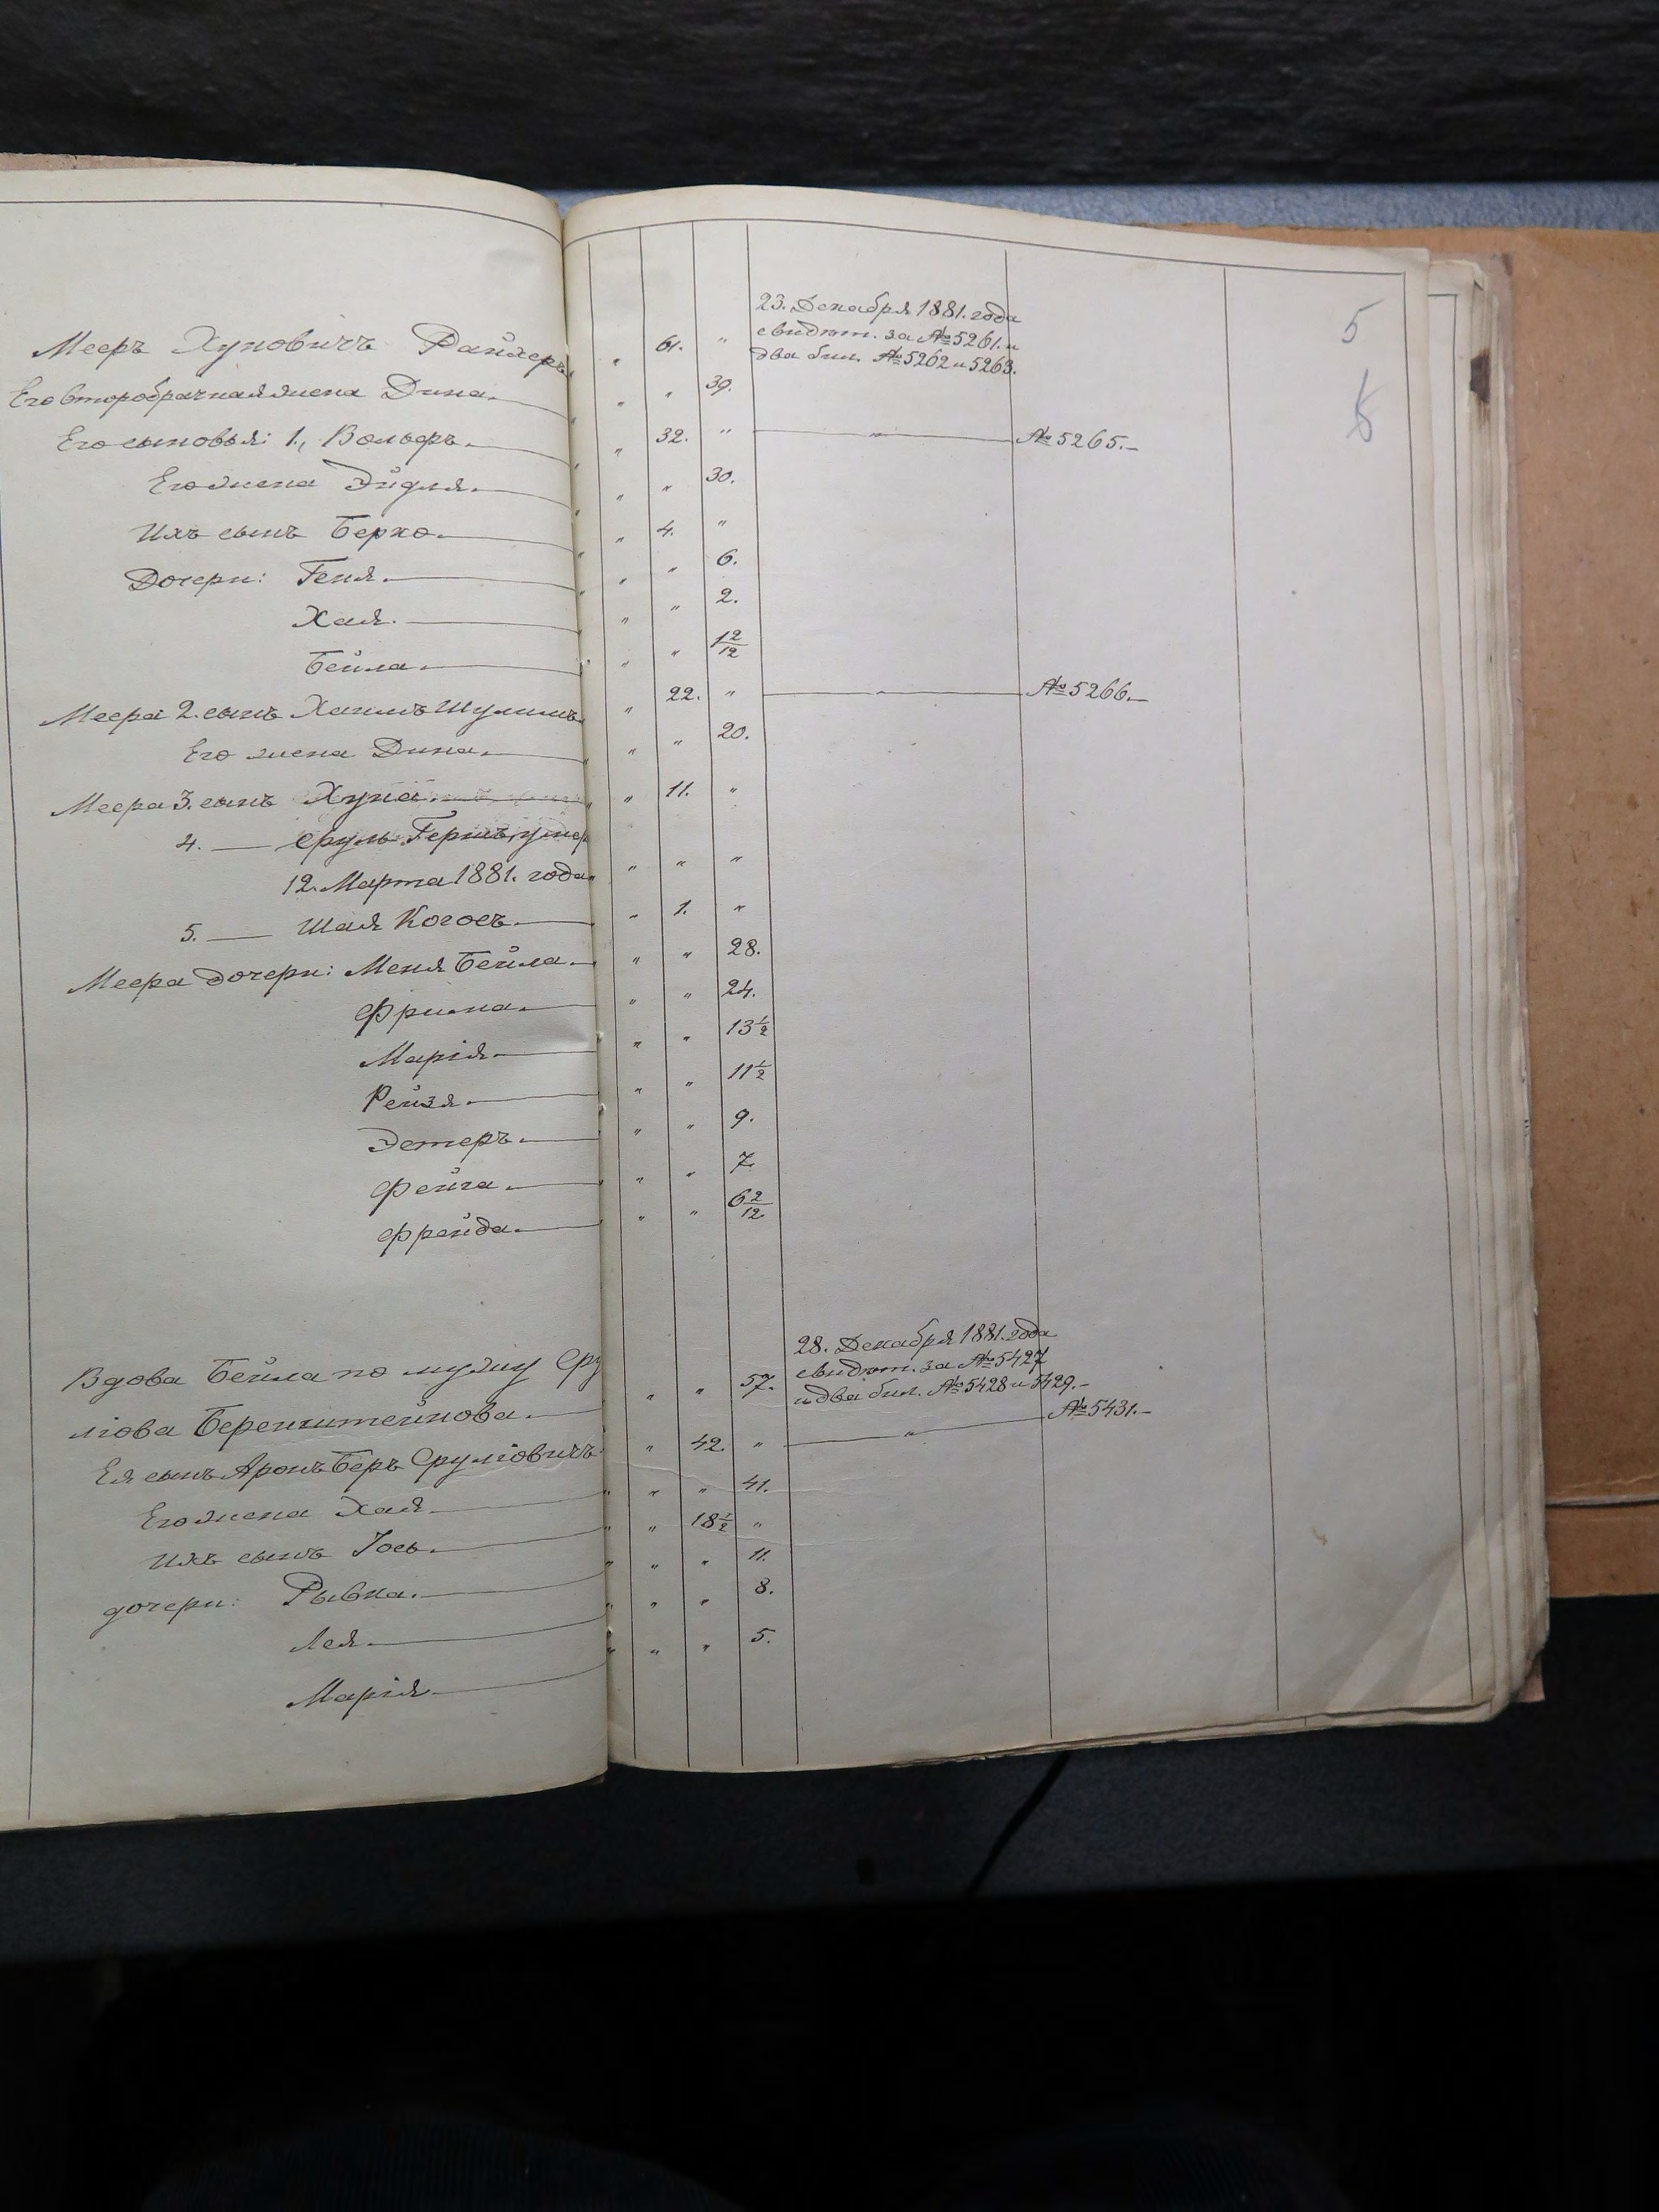 5
5
23. Декабря 1881. года
свидѣт. за № 5261. и
два бил. № 5262 и 5263.
Мееръ Хуновичъ Райхеръ " 61. "
Его второбрачная жена Дина. " " 39.
Его сыновья: 1., Вольфъ. " 32. " " № 5265.
Его жена Эйдля. " " 30.
Ихъ сынъ Берко. " 4. "
Дочери: Геня. " " 6.
Хая. " " 2.
Бейла. " " 1 2/12
Меера 2. сынъ Хаимъ Шулимъ " 22. " " № 5266.
Его жена Дина. " " 20.
Меера 3. сынъ Хуна. " 11. "
4. — Сруль Гершъ, умер
12. Марта 1881. года " " "
5. — Шая Когосъ. " 1. "
Меера дочери: Меня Бейла. " " 28.
Фрима. " " 24.
Марія. " " 13 1/2
Рейзя. " " 11 1/2
Эстеръ. " " 9.
Фейга. " " 7.
Фрейда. " " 6 2/12
28. Декабря 1881. года
свидѣт. за № 5427
и два бил. № 5428 и 5429.
Вдова Бейла по мужу Сру
ліова Беренштейнова. " " 57.
Ея сынъ Аронъ Беръ Сруліовичъ " 42. " " № 5431.
Его жена Хая. " " 41.
Ихъ сынъ Іось. " 18 1/2 "
дочери: Рывка. " " 11.
Лея. " " 8.
Марія " " 5.